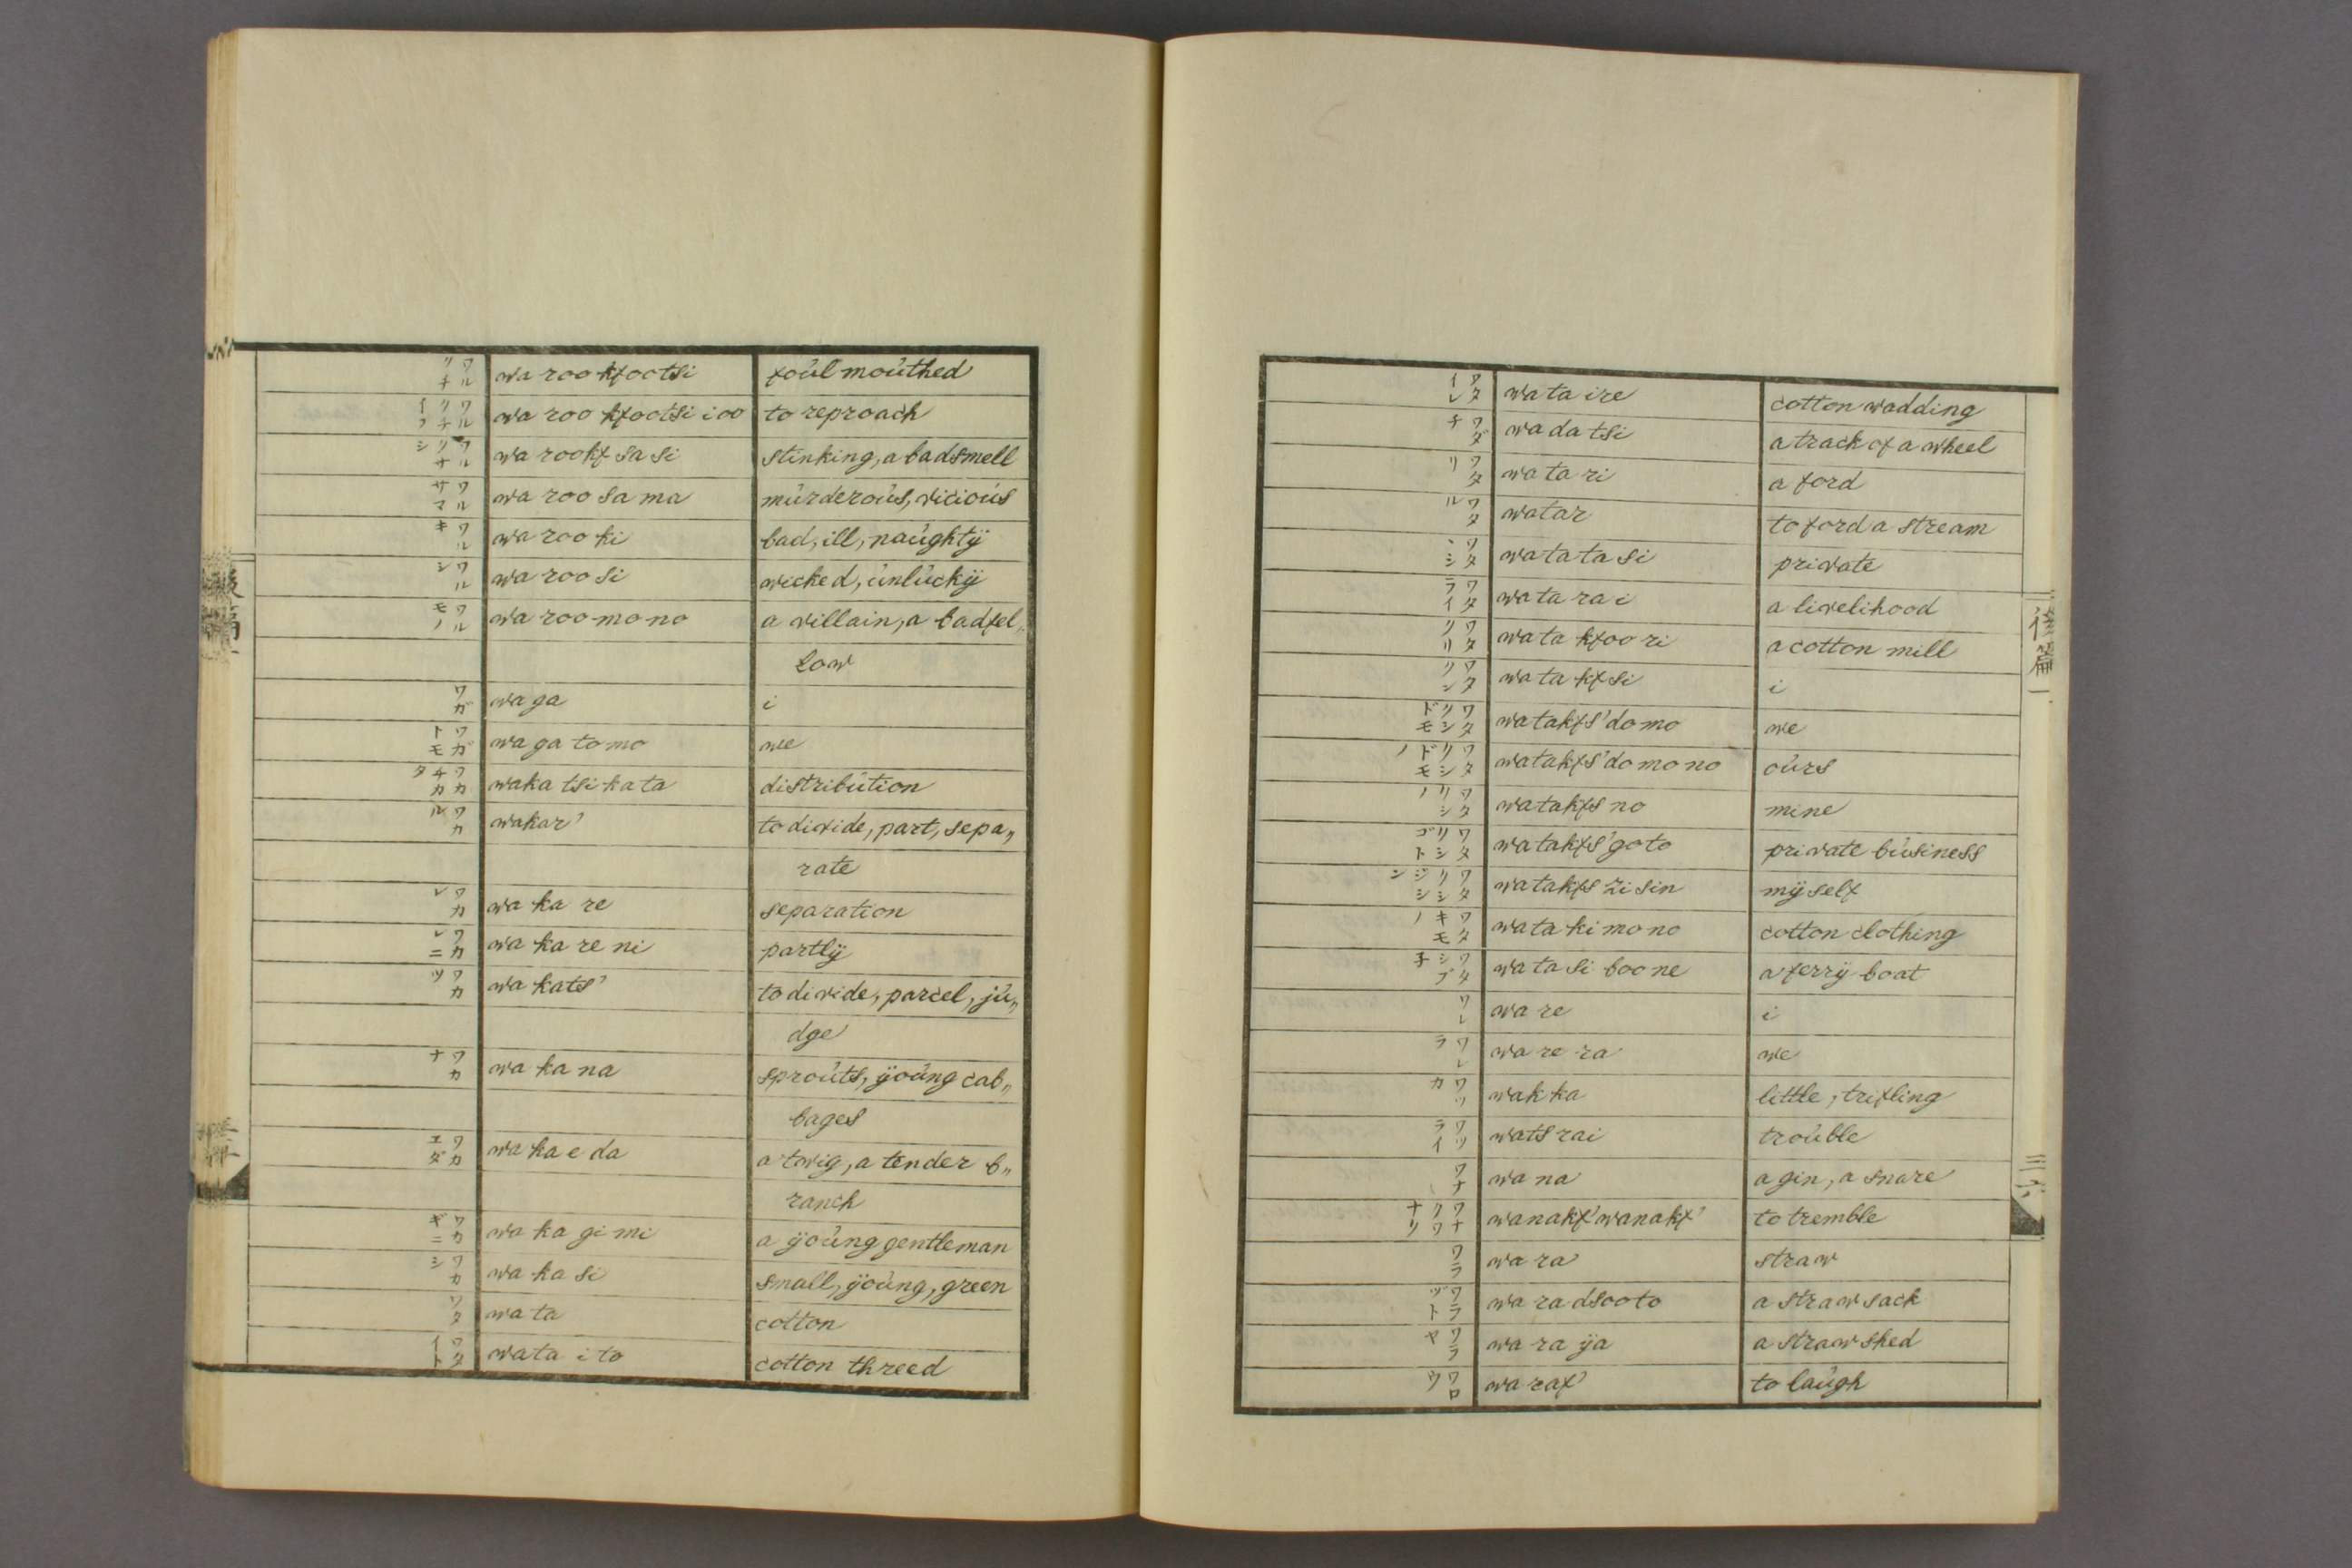 ワルクチ wa roo kfootsi foul mouthed
ワルクチイフ wa roo kfootsi i oo to reproach
ワルクサシ wa rookf sa si stinking, a bad smell
ワルサマ wa roo sa ma murderous, vicious
ワルキ wa roo ki bad, ill, naughtÿ
ワルシ wa roo si wicked, unluckÿ
ワルモノ wa roo mo no a villain, a bad fel„
low
ワガ wa ga i
ワガトモ wa ga to mo we
ワカチカタ waka tsi ka ta distribution
ワカル wakar' to divide, part, sepa„
rate
ワカレ wa ka re separation
ワカレニ wa ka re ni partlÿ
ワカツ wa kats' to divide, parcel, ju„
dge
ワカナ wa ka na sprouts, ÿoung cab„
bages
ワカエダ wa ka e da a twig, a tender b„
ranch
ワカギミ wa ka gi mi a ÿoung gentleman
ワカシ wa ka si small, ÿoung, green
ワタ wa ta cotton
ワタイト wata i to cotton threed
ワタイレ wa ta ire cotton wadding
ワダチ wa da tsi a track of a wheel
ワタリ wa ta ri a ford
ワタル watar to ford a stream
ワタヽシ wa ta ta si private
ワタライ wa ta ra i a livelihood
ワタクリ wa ta kfoo ri a cotton mill
ワタクシ wa ta kfsi i
ワタクシドモ watakfs' do mo we
ワタクシドモノ watakfs' do mo no ours
ワタクシノ watakfs no mine
ワタクシゴト watakfs' go to private business
ワタクシジシン watakfs zi sin mÿ self
ワタキモノ wa ta ki mo no cotton clothing
ワタシブネ wa ta si boo ne a ferrÿ boat
ワレ wa re i
ワレラ wa re ra we
ワツカ wak ka little, trifling
ワツライ wats rai trouble
ワナ wa na a gin, a snare
ワナクワナク wanakf' wanakf' to tremble
ワラ wa ra straw
ワラヅト wa ra dsoo to a straw sack
ワラヤ wa ra ÿa a straw shed
ワロウ wa raf' to laugh
三六